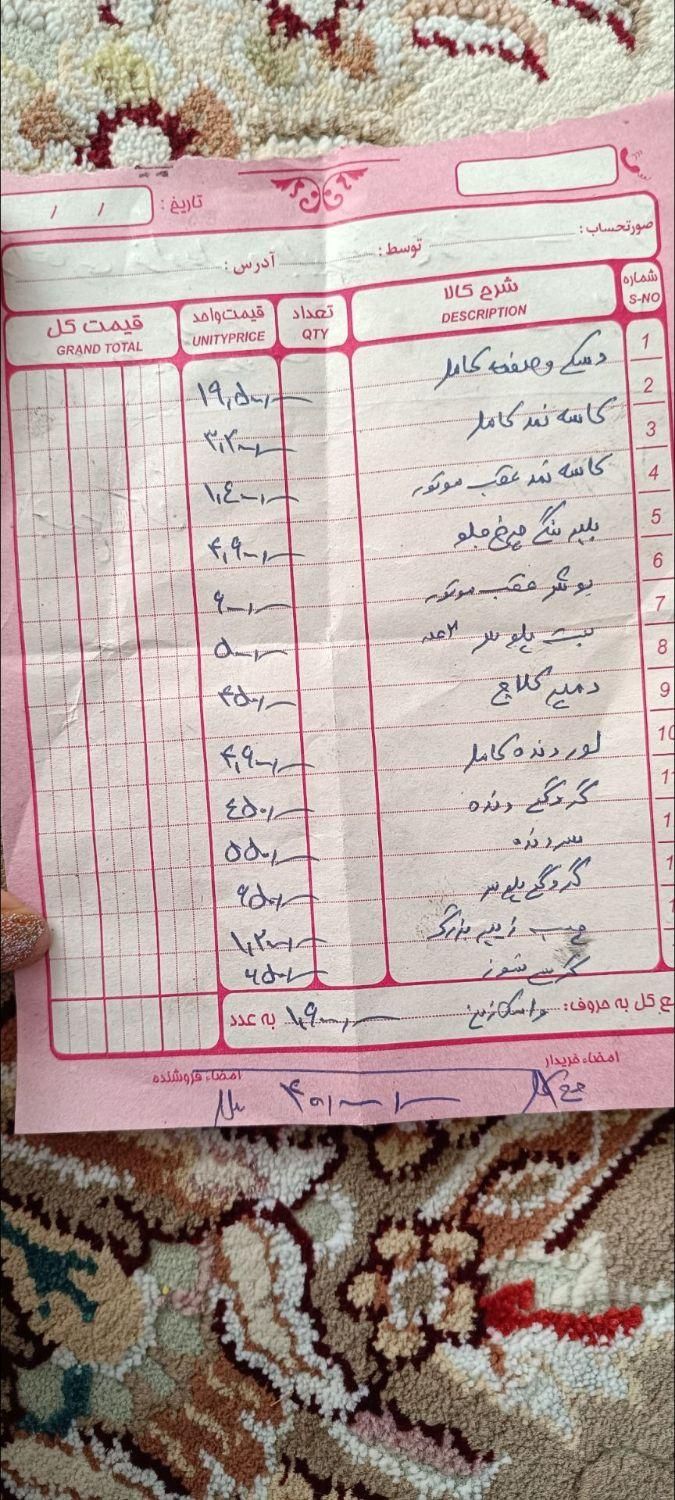 تاریخ : / /
صورتحساب : توسط : آدرس :
شماره S-NO شرح کالا DESCRIPTION تعداد QTY قیمت واحد UNITYPRICE قیمت کل GRAND TOTAL
1 دیسک و صفحه کامل ۱۹,۵۰۰/۰۰۰
2 کاسه نمد کامل ۳,۲۰۰/۰۰۰
3 کاسه نمد عقب موتور ۱,۴۰۰/۰۰۰
4 بلبرینگ چرخ جلو ۴,۹۰۰/۰۰۰
5 بوش عقب موتور ۶۰۰/۰۰۰
6 بست پلوس ۲عدد ۵۰۰/۰۰۰
7 کلاچ ۴۵۰/۰۰۰
8 دنده کامل ۴,۹۰۰/۰۰۰
9 گردگیر دنده ۴۵۰/۰۰۰
10 سردنده ۵۵۰/۰۰۰
1 گردگیر پلوس ۶۵۰/۰۰۰
1 چسب بزرگ ۱,۲۰۰/۰۰۰
1 شور ۶۵۰/۰۰۰
ع کل به حروف : واسکازین ۱,۹۰۰/۰۰۰ به عدد
امضاء خریدار امضاء فروشنده
جمع کل ریال